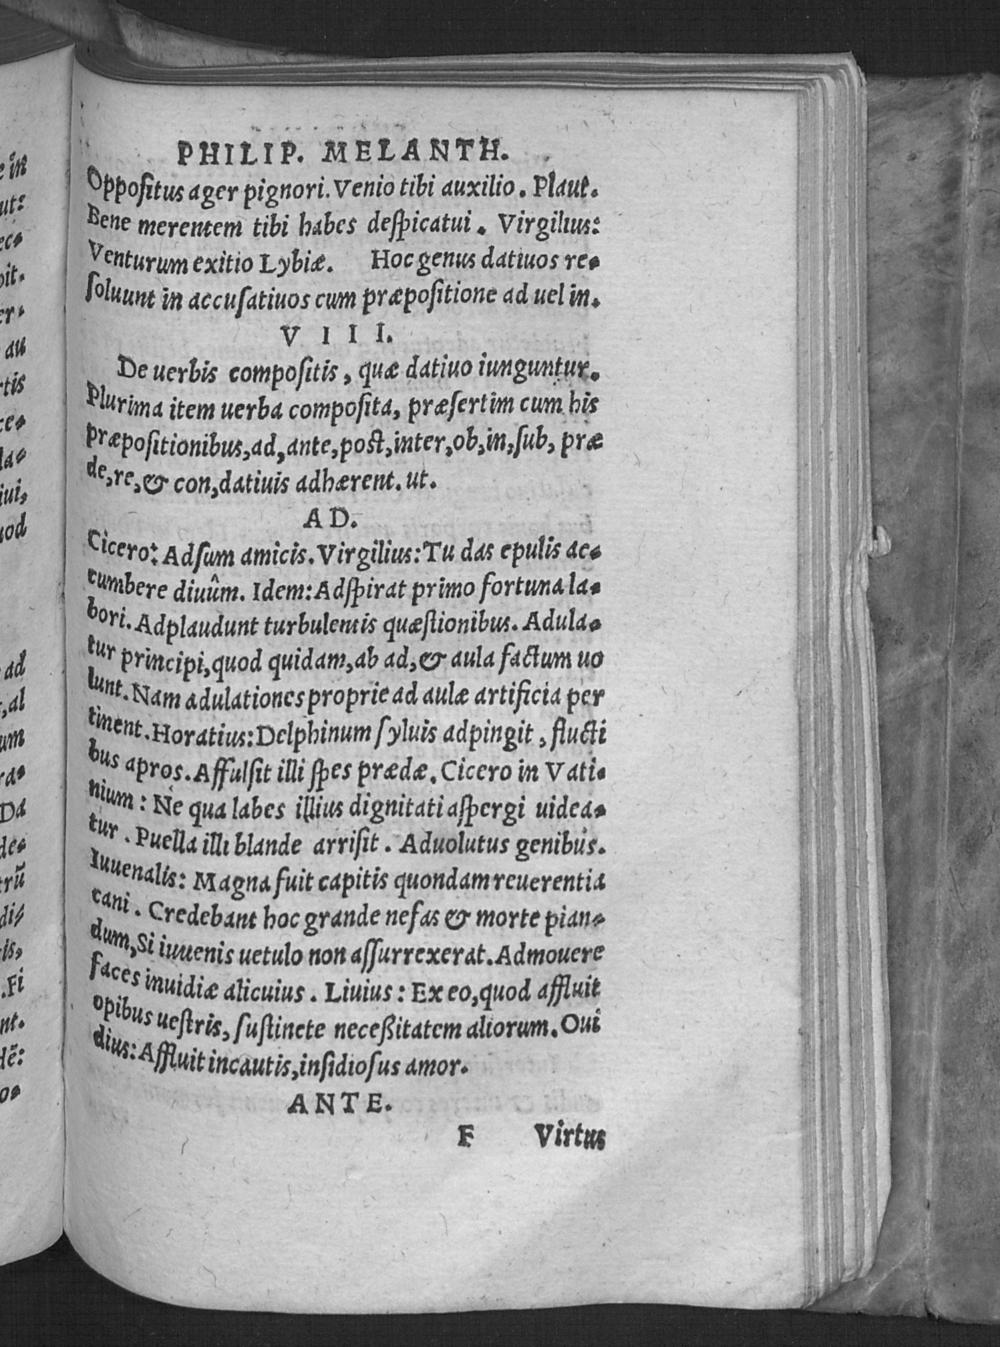 PHILIP. MELANTH.
Oppositus ager pignori. Venio tibi auxilio. Plaut.
Bene merentem tibi habes despicatui. Virgilius:
Venturum exitio Lybiæ. Hoc genus datiuos re-
soluunt in accusatiuos cum præpositione ad uel in.
VIII.
De uerbis compositis, quæ datiuo iunguntur.
Plurima item uerba composita, præsertim cum his
præpositionibus, ad, ante, post, inter, ob, in, sub, præ
de, re, & con, datiuis adhærent. ut.
AD.
Cicero: Adsum amicis. Virgilius: Tu das epulis ac-
cumbere diuûm. Idem: Adspirat primo fortuna la-
bori. Adplaudunt turbulentis quæstionibus. Adula-
tur principi, quod quidam, ab ad, & aula factum uo
lunt. Nam adulationes proprie ad aulæ artificia per
tinent. Horatius: Delphinum syluis adpingit, flucti
bus apros. Affulsit illi spes prædæ. Cicero in Vati-
nium: Ne qua labes illius dignitati aspergi uidea-
tur. Puella illi blande arrisit. Aduolutus genibus.
Iuuenalis: Magna fuit capitis quondam reuerentia
cani. Credebant hoc grande nefas & morte pian-
dum, Si iuuenis uetulo non assurrexerat. Admouere
faces inuidiæ alicuius. Liuius: Ex eo, quod affluit
opibus uestris, sustinete necessitatem aliorum. Oui
dius: Affluit incautis, insidiosus amor.
ANTE.
F Virtus
e in
ut:
ec-
pit.
er.
au
rtis
ce-
la-
iui,
uod
ad
, al
um
ra-
Da
de-
trũ
dis
is,
. Fi
nt.
dẽ:
o-